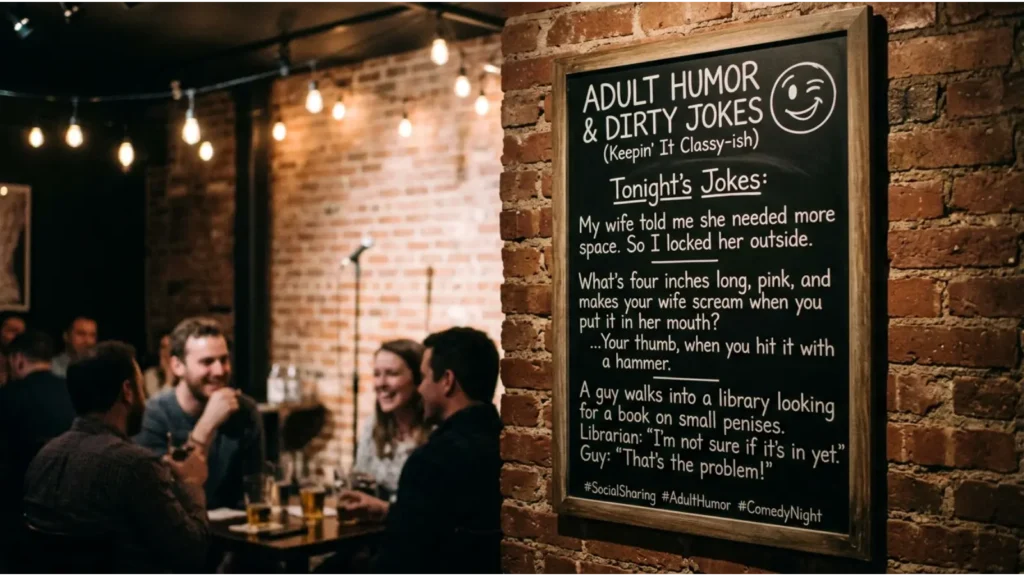 ADULT HUMOR
& DIRTY JOKES
(Keepin' It Classy-ish)
Tonight's Jokes:
My wife told me she needed more
space. So I locked her outside.
What's four inches long, pink, and
makes your wife scream when you
put it in her mouth?
...Your thumb, when you hit it with
a hammer.
A guy walks into a library looking
for a book on small penises.
Librarian: "I'm not sure if it's in yet."
Guy: "That's the problem!"
#SocialSharing #AdultHumor #ComedyNight